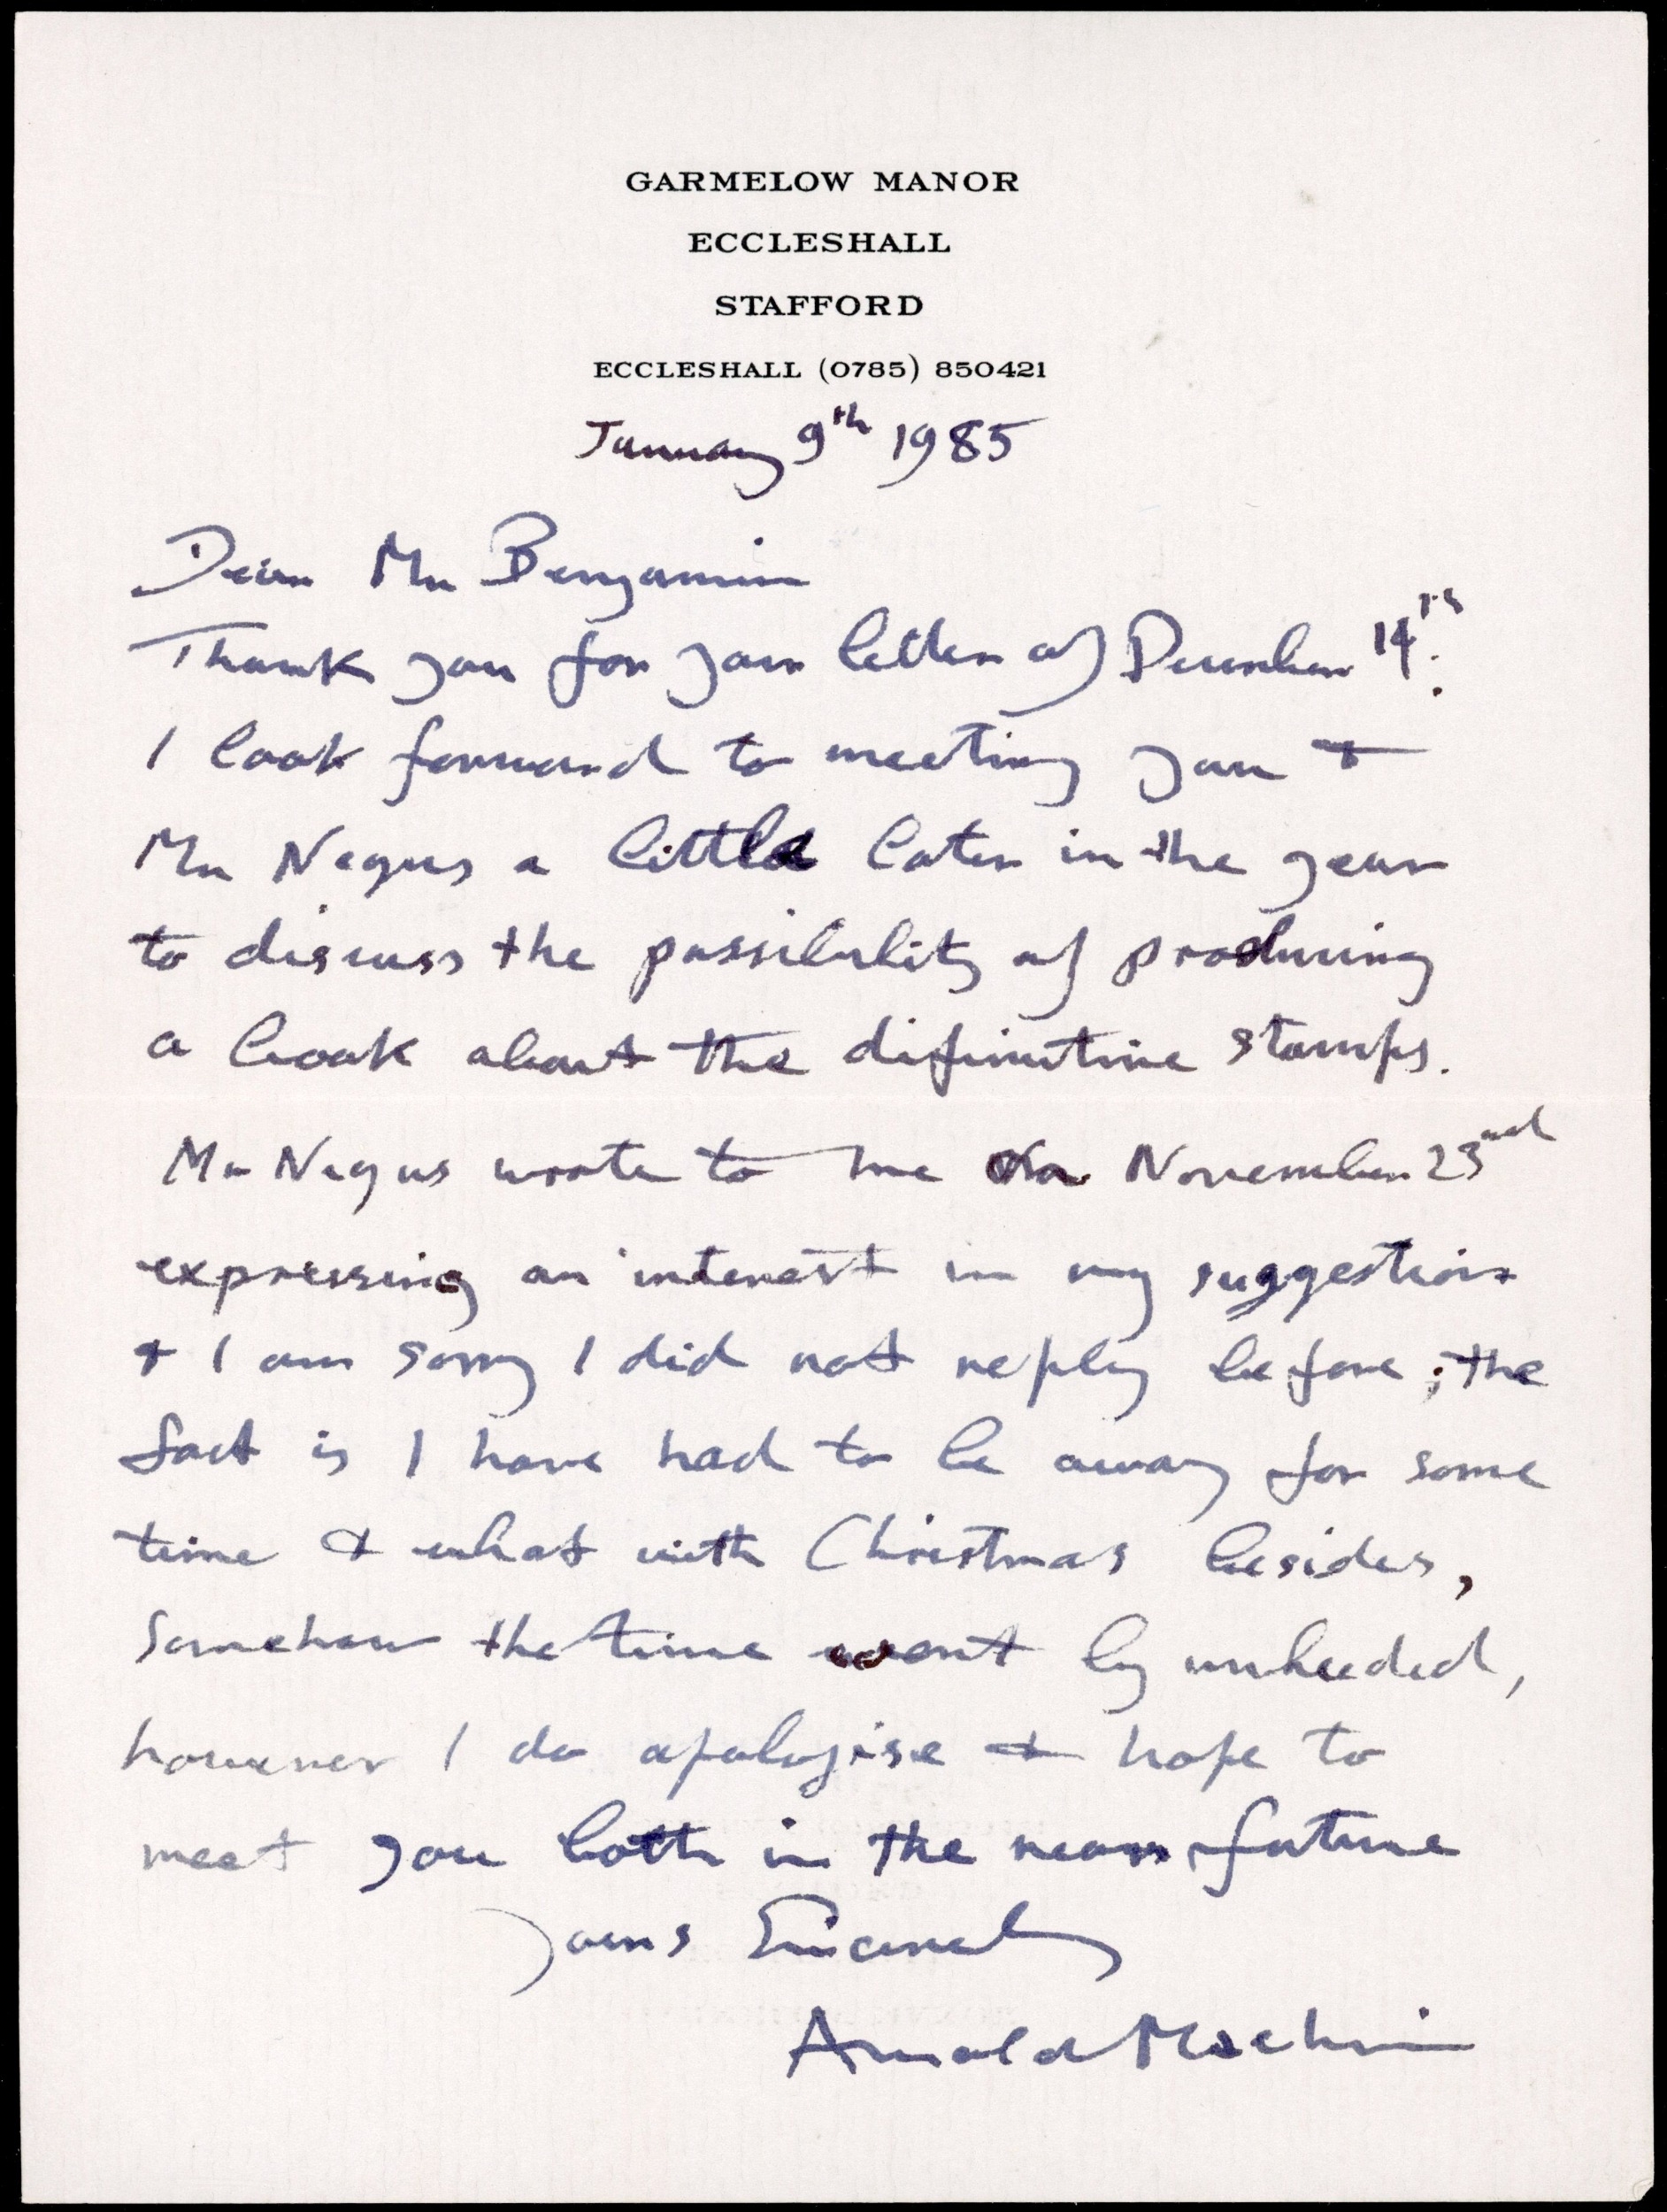 GARMELOW MANOR
ECCLESHALL
STAFFORD
ECCLESHALL (0785) 850421
January 9th 1985
Dear Mr Benjamin
Thank you for your letter of December 14th.
I look forward to meeting you &
Mr Negus a little later in the year
to discuss the possibility of producing
a book about the difinitive stamps.
Mr Negus wrote to me on November 23nd
expressing an interest in my suggestion
& I am sorry I did not reply before; the
fact is I have had to be away for some
time & what with Christmas besides,
somehow the time went by unheeded,
however I do apologise & hope to
meet you both in the near future
Yours Sincerely
Arnold Machin